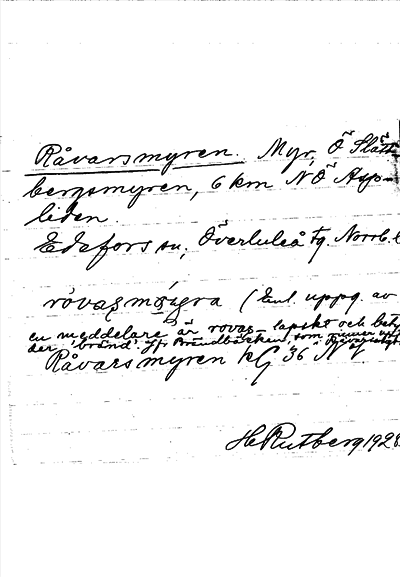 Råvarsmyren. Myr, Ö Slått-
bergsmyren, 6 km NÖ Asp-
liden.
Edefors sn, Överluleå tg. Norrb. l
rovas (Enl. uppg. av
en meddelare är rovas- lapskt och bety
der 'bränd'. Jfr Brändbäcken, som rinner
Råvarsmyren kG 36 N
H Rutberg 1928